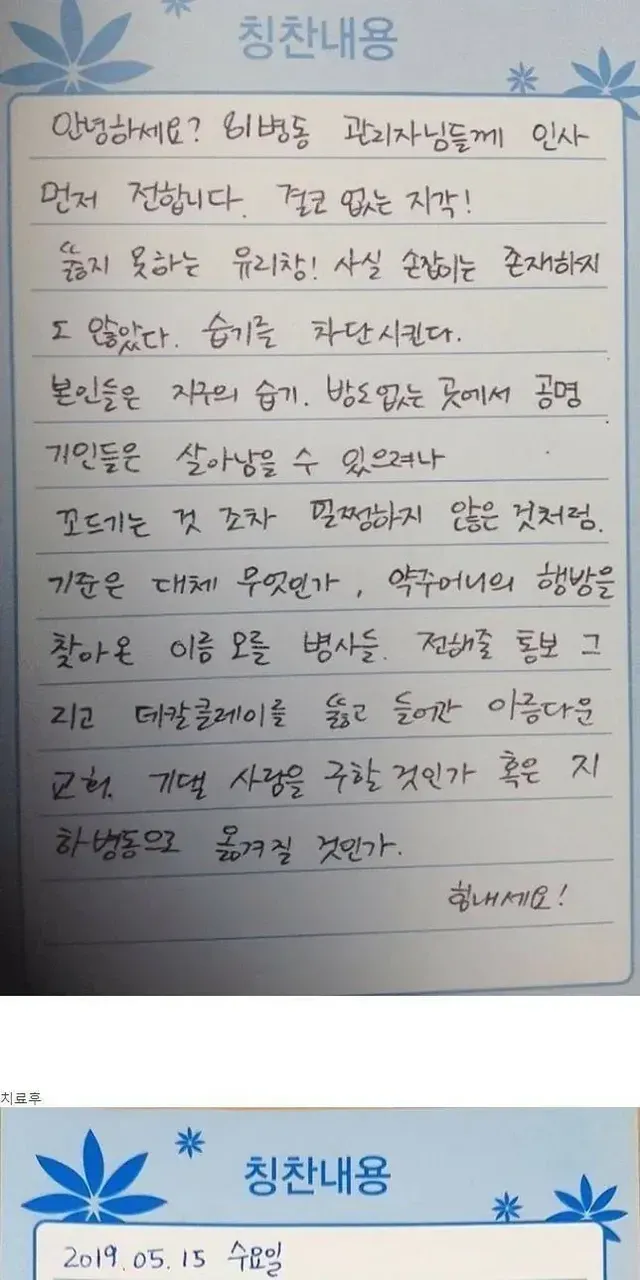 칭찬내용
안녕하세요? 81병동 관리자님들께 인사
먼저 전합니다. 결코 없는 지각!
뚫지 못하는 유리창! 사실 손잡이는 존재하지
도 않았다. 습기를 차단시킨다.
본인들은 지구의 습기. 방도없는 곳에서 공명
기인들은 살아남을 수 있으려나
꼬드기는 것 조차 멀쩡하지 않은 것처럼.
기준은 대체 무엇인가, 약주머니의 행방을
찾아온 이름 모를 병사들. 전해줄 통보 그
리고 데칼클레이를 뚫고 들어간 아름다운
교회. 기댈 사람을 구할 것인가 혹은 지
하병동으로 옮겨질 것인가.
힘내세요!
치료후
칭찬내용
2019.05.15 수요일